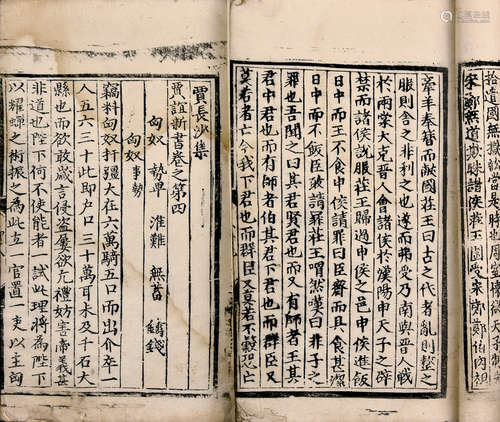 拾遺國無獄訟當是時也
宋鄭無道欺昧諸侯莊王圍宋伐鄭鄭伯肉袒
牽羊奉簪而獻國莊王曰古之伐者亂則整之
服則舍之非利之也遂而弗受乃南與晉人戰
於兩棠大克晉人會諸侯於漢陽申天子之辟
禁而諸侯說服莊王歸過申侯之邑申侯進飯
日中而王不食申侯請罪曰臣齋而具食甚潔
日中而不飯臣敢請罪莊王喟然嘆曰非子之
罪也吾聞之曰其君賢君也而有師者王其
君中君也而有師者伯其君下君也而群臣又
莫若者亡今我下君也而群臣又莫若不穀恐亡
賈長沙集
賈誼新書卷之第四
匈奴 勢卑 淮難 無蓄 鑄錢
匈奴 事勢
竊料匈奴控弦大在六萬騎五口而出介卒一
人五六三十此即户口三十萬耳未及千石大
縣也而欲敢歲言侵盗屢欲亢禮妨害帝義甚
非道也陛下何不使能者一試此理將為陛下
以耀蟬之術振之為此立一官置一吏以主匈